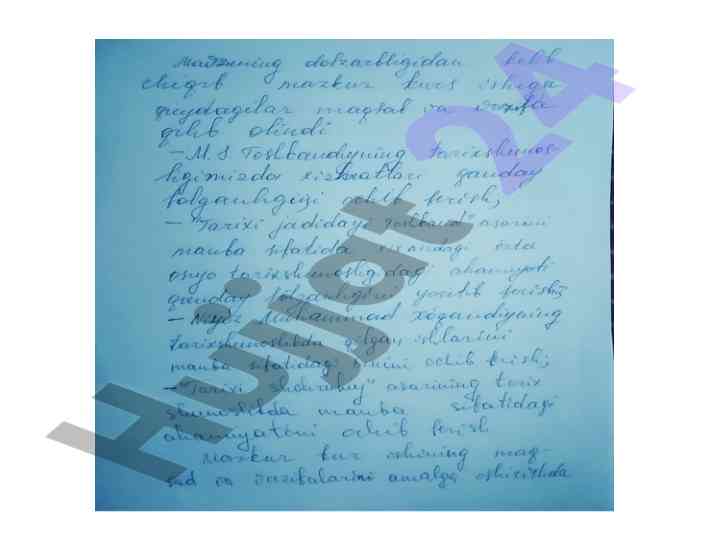 Mavzuning dolzarbligidan kelib
chiqib mazkur kurs ishiga
quydagilar maqsad va vazifa
qilib olindi
– M. S. Toshkandiyning tarixshunos-
ligimizda xizmatlari qanday
bolganligini ochib berish;
– "Tarixi jadidayi Toshkand" asarini
manba sifatida o'rta
osiyo tarixshunosligidagi ahamiyati
qanday bolganligini yoritib berish;
– Niyoz Muhammad Xoqandiyning
tarixshunoslikda qolgan ishlarini
manba sifatidagi ochib berish;
– "Tarixi Shohruhiy" asarining tarix
shunoslikda manba sifatidagi
ahamiyatini ochib berish
Mazkur kur ishining maq-
sad va vazifalarini amalga oshirishda
Hujjat 24